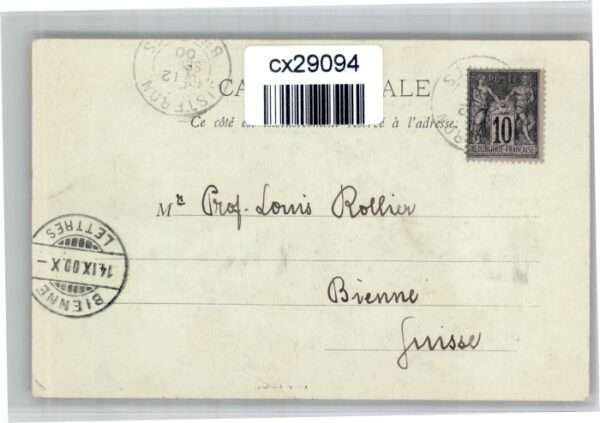 cx29094
CA ALE
Ce côté est exclusivement réservé à l'adresse.
POSTES
10
REPUBLIQUE FRANÇAISE
Mr Prof. Louis Rollier
Bienne
Suisse
BIENNE
14.IX.00.X
LETTRES
12
00